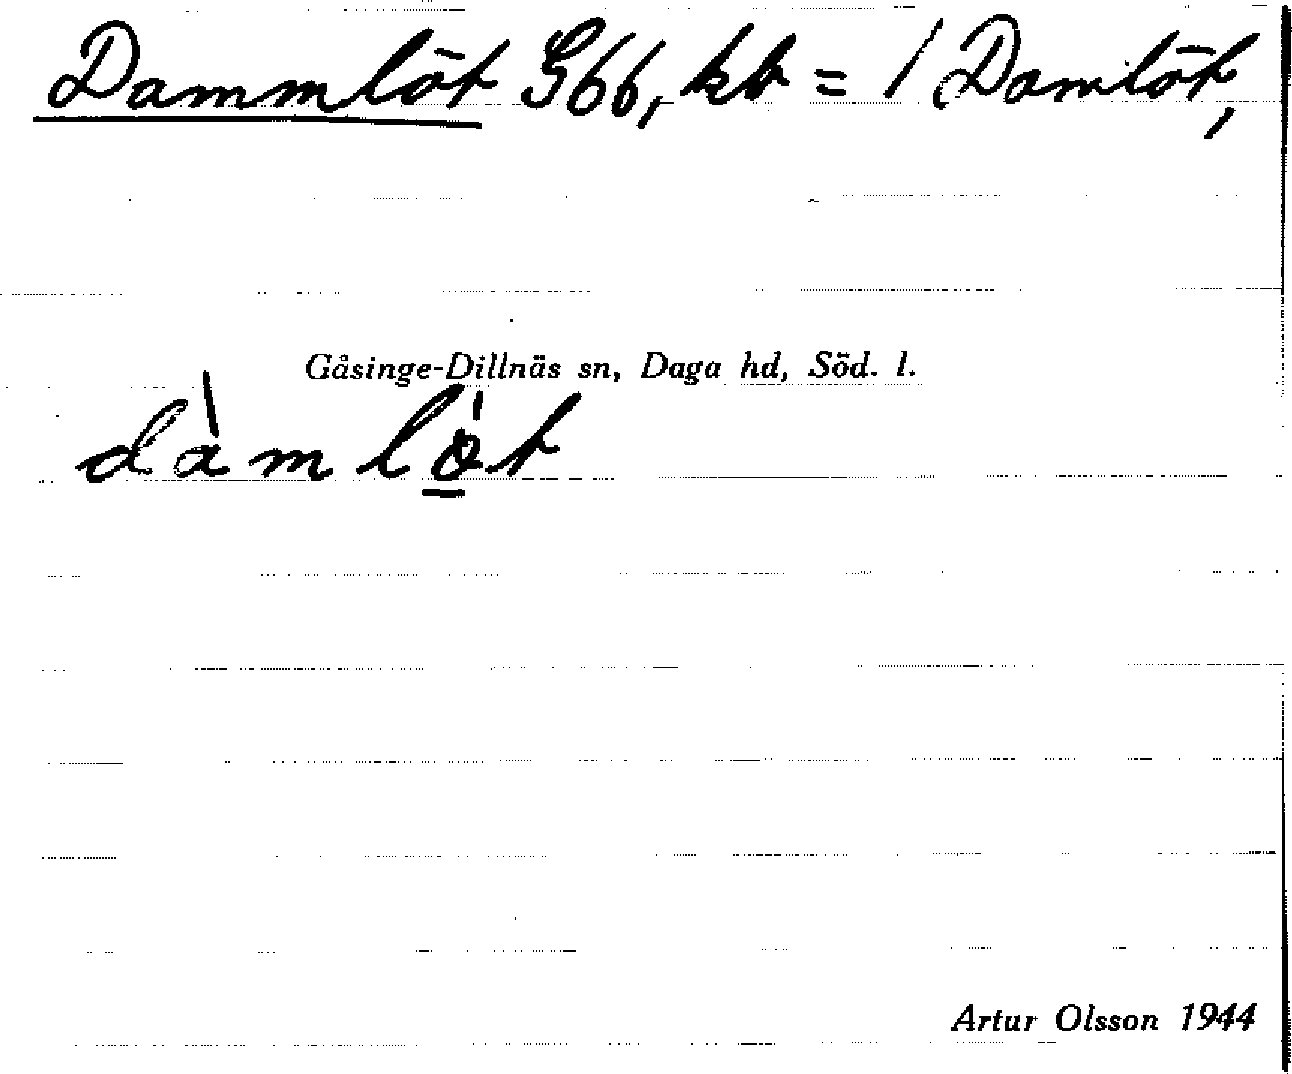 Dammlöt G66, kb = / Damlöt,
Gåsinge-Dillnäs sn, Daga hd, Söd. l.
dàmlò̲t
Artur Olsson 1944